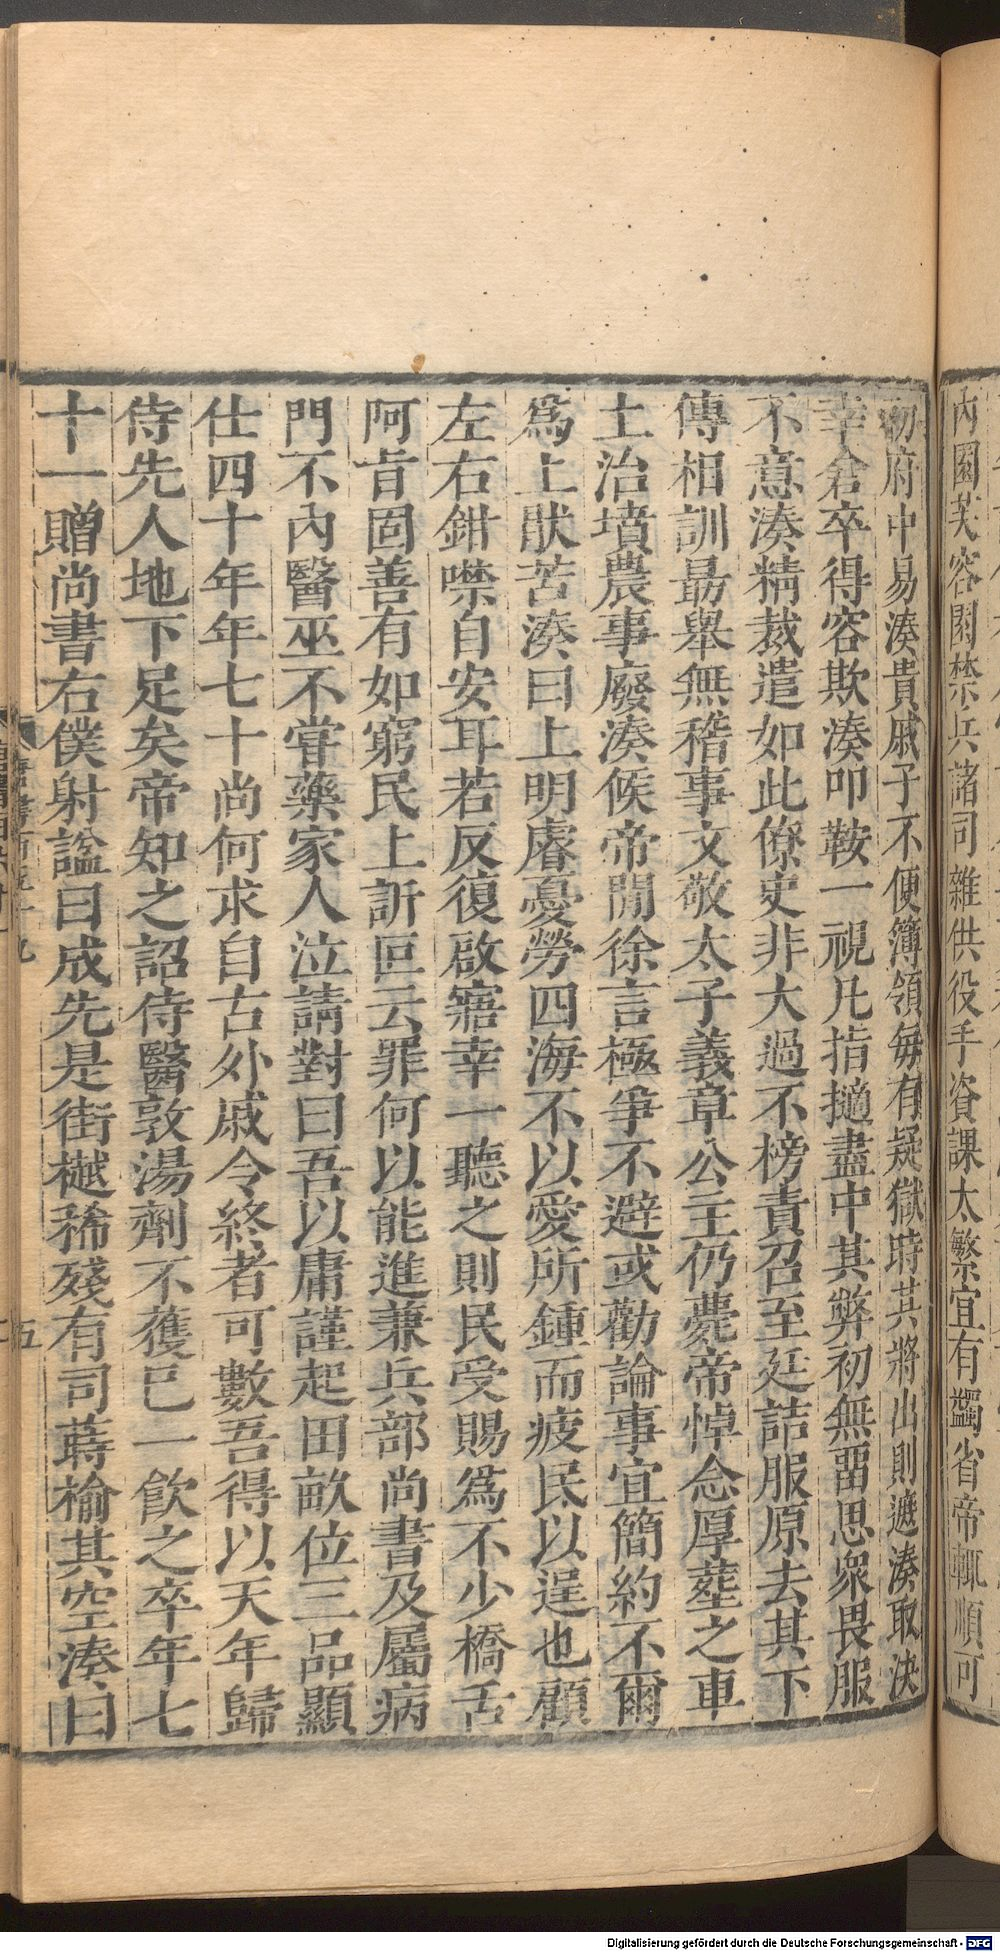 內園芙容園禁兵諸司雜供役手資課太繁宜有蠲省帝輒順可
初府中易湊貴戚子不便簿領每有疑獄時其將出則遮湊取決
幸倉卒得容欺湊叩鞍一視凡指擿盡中其弊初無畱思衆畏服
不意湊精裁遣如此僚史非大過不榜責召至廷詰服原去其下
傳相訓勗舉無稽事文敬太子義章公主仍薨帝悼念厚葬之車
土治墳農事廢湊候帝閒徐言極爭不避或勸論事宜簡約不爾
爲上猒苦湊曰上明睿憂勞四海不以愛所鍾而疲民以逞也顧
左右鉗噤自安耳若反復啟寤幸一聽之則民受賜爲不少橋舌
阿旨固善有如窮民上訢叵云罪何以能進兼兵部尚書及屬病
門不內醫巫不嘗藥家人泣請對曰吾以庸謹起田畝位三品顯
仕四十年年七十尚何求自古外戚令終者可數吾得以天年歸
侍先人地下足矣帝知之詔侍醫敦湯劑不獲已一飮之卒年七
十一贈尚書右僕射謚曰成先是街樾稀殘有司蒔楡其空湊曰
五
Digitalisierung gefördert durch die Deutsche Forschungsgemeinschaft - DFG